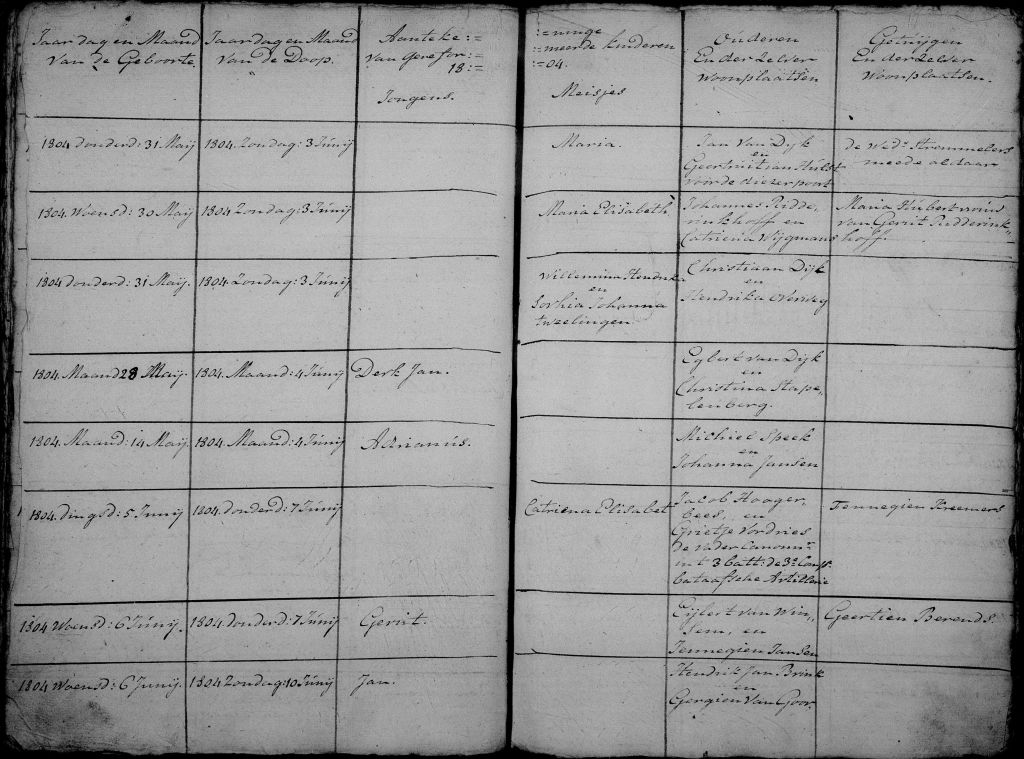 Jaar dag en Maand
Van de Geboorte.
Jaar dag en Maand
Van de Doop.
Aanteke :=
van Gerefor :=
18 :=
Jongens.
:= ninge
:= meerde kinderen
:= 04.
Meisjes
Ouderen
En der Zelver
Woonplaatsen
Getuijgen
En der Zelver
Woonplaatsen.
1804 donderd: 31 Maij
1804. Zondag: 3 Junij
Maria.
Jan Van Dijk
en
Geertruit van Hulst
voor de diezerpoort
de Wed:
meede aldaar
1804. Woensd: 30 Maij
1804 Zondag: 3 Junij
Maria Elisabeth
Johannes Ridde,
rinkhoff en
Catriena Wijgmans
Maria Hubert
van Gerrit Ridderink,,
hoff.
1804 donderd: 31 Maij.
1804. Zondag: 3 Junij
Willemina Hendrika
en
Sophia Johanna
tweelingen
Christiaan Dijk
en
Hendrika Overweg
1804. Maand 28 Maij.
1804. Maand: 4 Junij
Derk Jan.
Egbert van Dijk
en
Christina Stape,
lenberg.
1804. Maand: 14 Maij.
1804 Maand: 4 Junij
Adrianus.
Michiel Speek
en
Johanna Jansen
1804. dingsd: 5 Junij
1804. donderd: 7 Junij
Catriena Elisabet
Jacob Hooger,
beets,, en
Grietje Vordries
de Vader Canonnr
int 3 batt: de 3e Comp:
bataafsche Artillerie
Fennegien Kreemers
1804 Woensd: 6 Junij.
1804 donderd: 7 Junij
Gerrit.
Eijlert van Win,,
sem, en
Jennegien Jansen
Geertien Berends.
1804 Woensd: 6 Junij.
1804 Zondag: 10 Junij
Jan.
Hendrik Jan Brink
en
Gergien Van Goor.